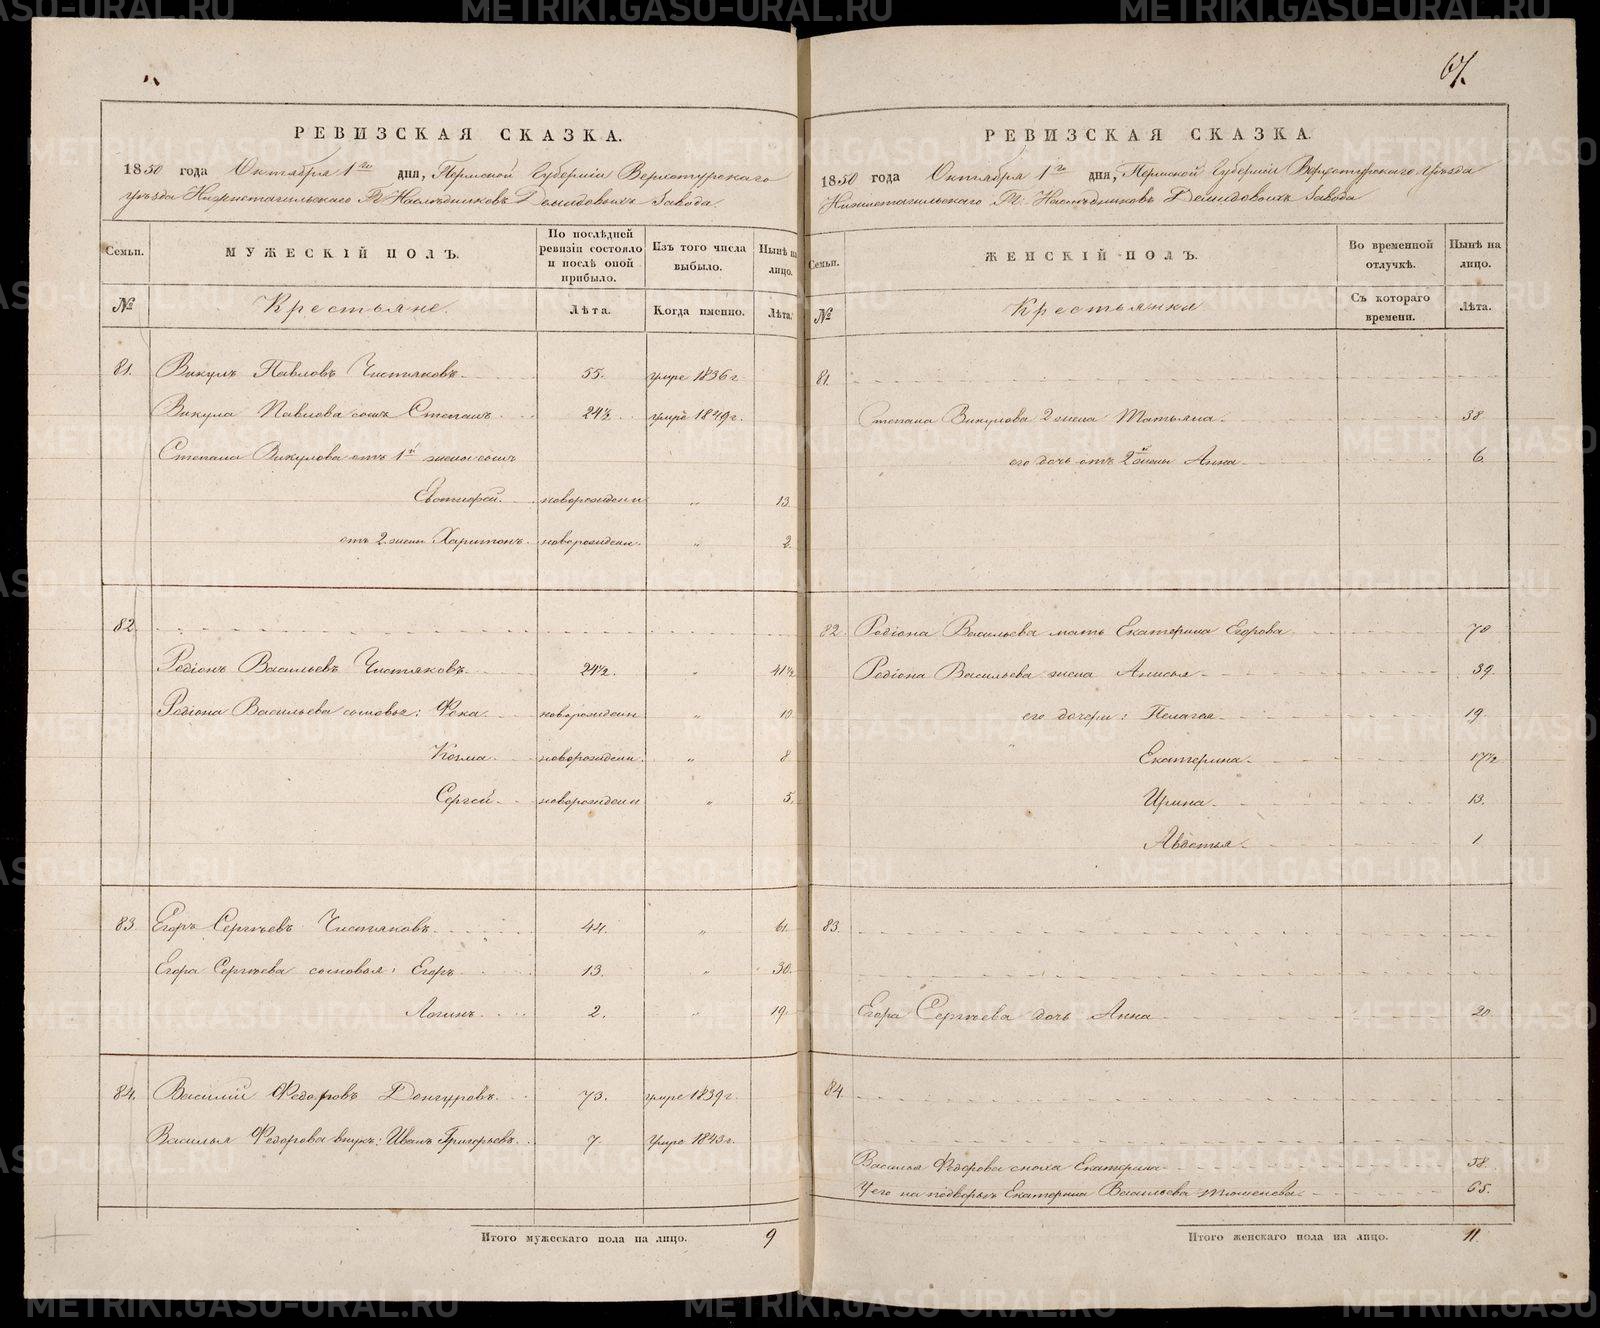 67.
РЕВИЗСКАЯ СКАЗКА.
1850 года Октября 1го дня, Пермской Губерніи Верхотурскаго
уѣзда Нижнетагильскаго Гг Наслѣдниковъ Демидовыхъ Завода.
Семьи.
МУЖЕСКІЙ ПОЛЪ.
По послѣдней ревизіи состояло и послѣ оной прибыло.
Изъ того числа выбыло.
Нынѣ на лицо.
№
Крестьяне.
Лѣта.
Когда именно.
Лѣта.
81. Викулъ Павловъ Чистяковъ. 55. умре 1836 г
Викула Павлова сынъ Степанъ. 24½. умре 1849 г.
Степана Викулова отъ 1й жены сынъ
Евстифей. новорожденн " 13.
отъ 2. жены Харитонъ. новорожден. " 2.
82.
Родіонъ Васильевъ Чистяковъ. 24½. " 41½
Родіона Васильева сыновья: Фока новорожденн " 10
Козма. новорожденн. " 8
Сергей. новорожденн " 5.
83. Егоръ Сергѣевъ Чистяковъ. 44. " 61.
Егора Сергѣева сыновья: Егоръ 13. " 30.
Логинъ. 2. " 19.
84. Василій Федоровъ Донгуровъ. 73. умре 1839 г.
Василья Федорова внукъ: Иванъ Григорьевъ. 7. умре 1843 г.
Итого мужескаго пола на лицо. 9
РЕВИЗСКАЯ СКАЗКА.
1850 года Октября 1го дня, Пермской Губерніи Верхотурскаго уѣзда
Нижнетагильскаго Гг: Наслѣдниковъ Демидовыхъ Завода
Семьи.
ЖЕНСКІЙ ПОЛЪ.
Во временной отлучкѣ.
Нынѣ на лицо.
№
Крестьянки
Съ котораго времени.
Лѣта.
81.
Степана Викулова 2 жена Татьяна. 38
его дочь отъ 2й жены Анна 6.
82. Родіона Васильева мать Екатерина Егорова 70
Родіона Васильева жена Анисья 39
его дочери: Пелагея 19.
Екатерина. 17½
Ирина. 13.
Авдотья. 1
83.
Егора Сергѣева дочь Анна 20
84.
Василья Федорова сноха Екатерина 58.
У его на подворьѣ Екатерина Васильева 65.
Итого женскаго пола на лицо. 11
METRIKI.GASO-URAL.RU